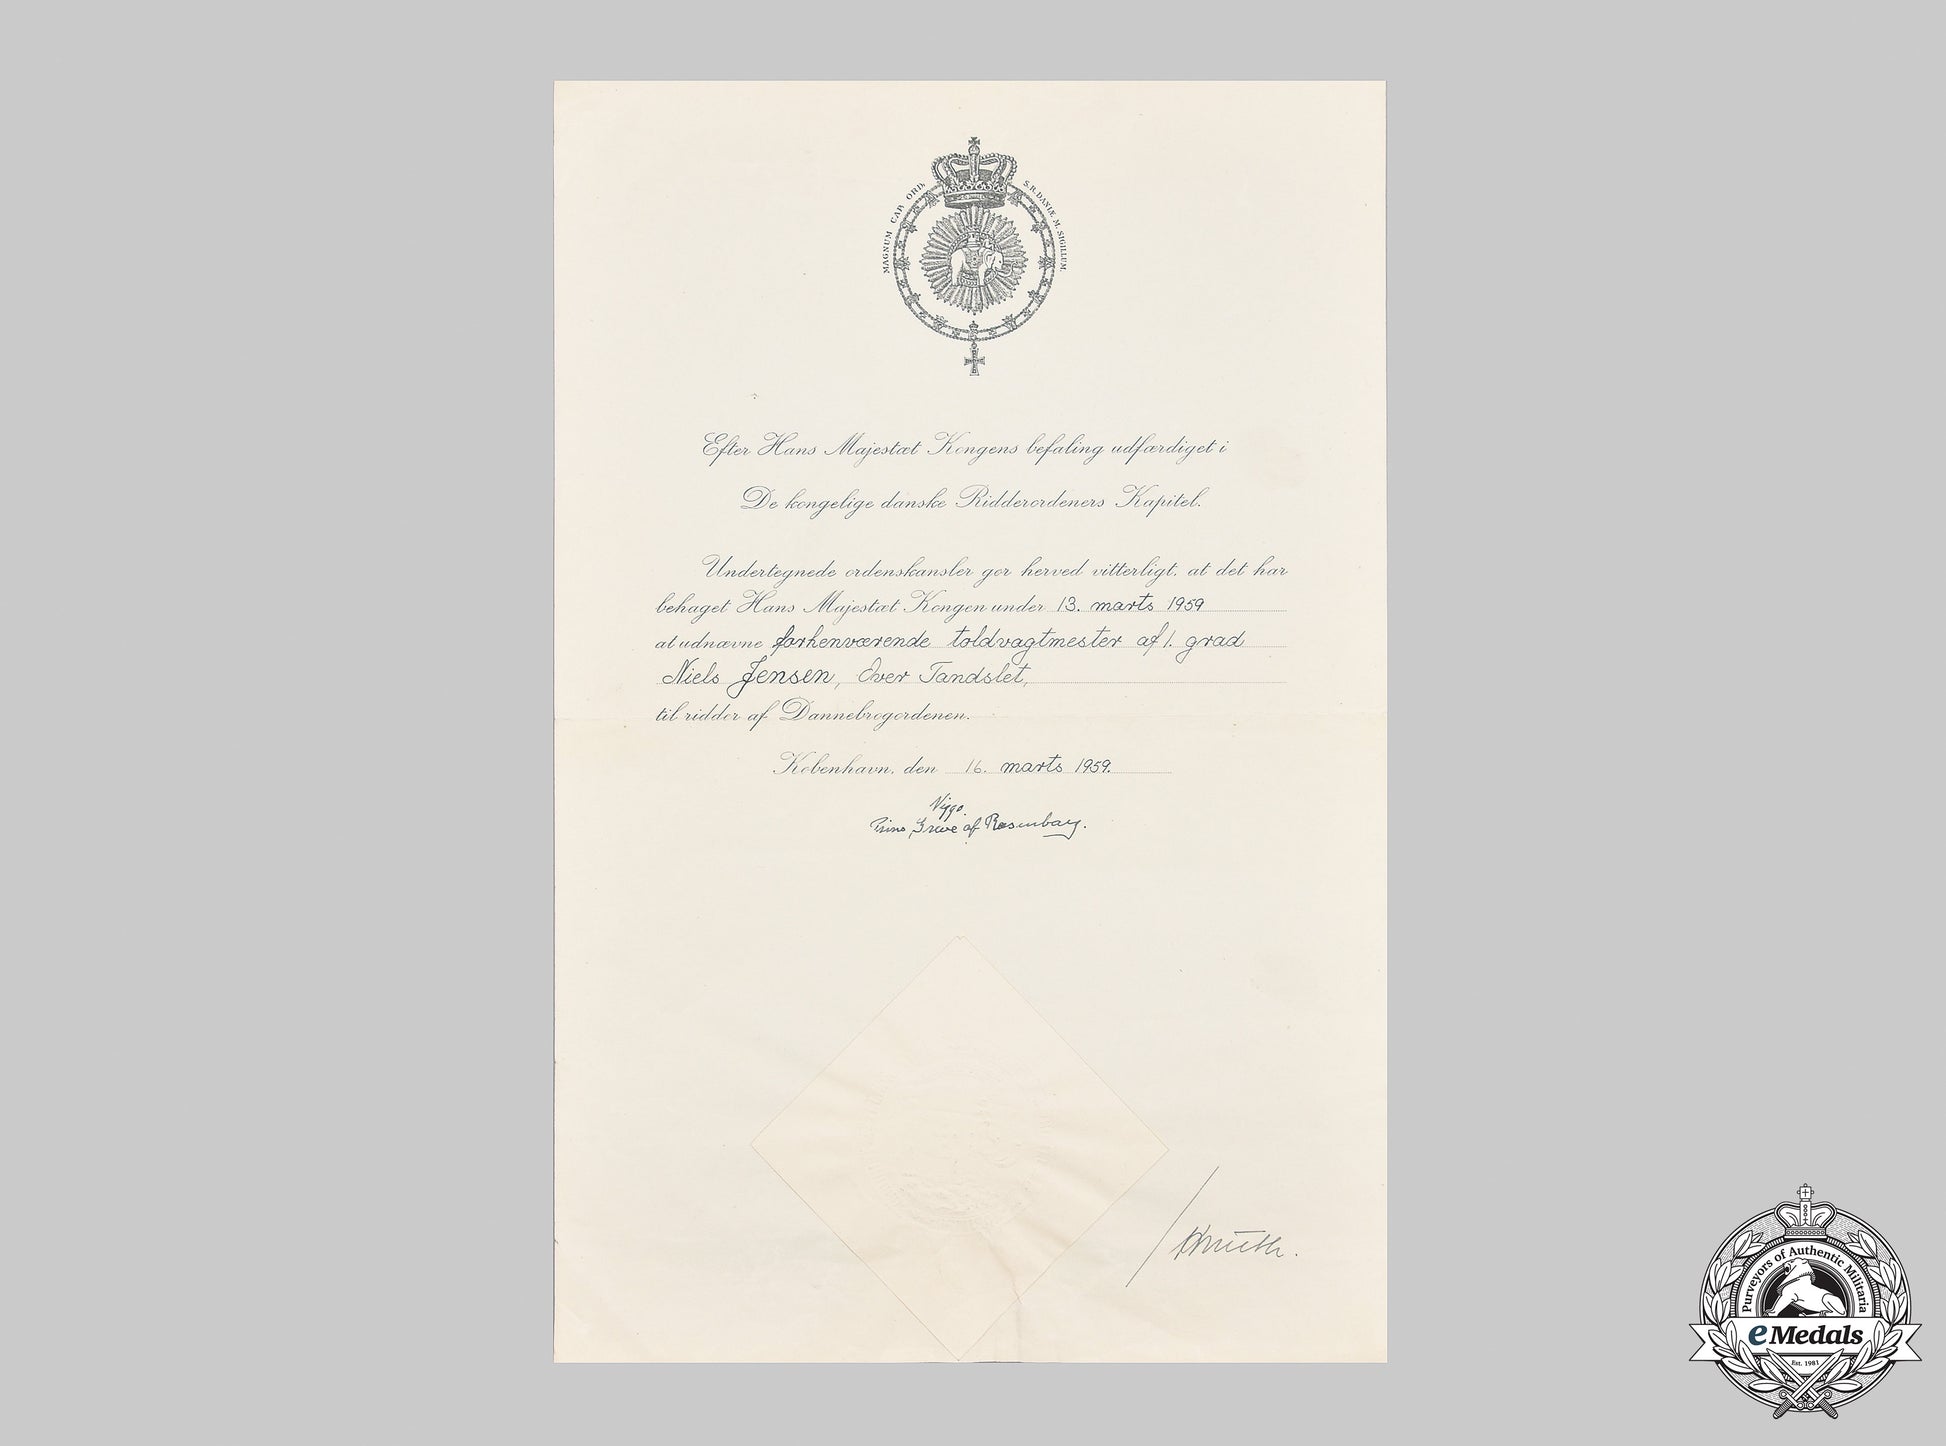 MAGNUM CAP. ORD. S. R. DANIÆ M. SIGILLUM.
Efter Hans Majestæt Kongens befaling udfærdiget i
De kongelige danske Ridderordeners Kapitel.
Undertegnede ordenskansler gør herved vitterligt, at det har
behaget Hans Majestæt Kongen under 13. marts 1959
at udnævne forhenværende toldvagtmester af 1. grad
Niels Jensen, Over Tandslet,
til ridder af Dannebrogordenen.
København, den 16. marts 1959.
Viggo.
Prins, Greve af Rosenborg.
Knuth.
Purveyors of Authentic Militaria
eMedals
Est. 1983